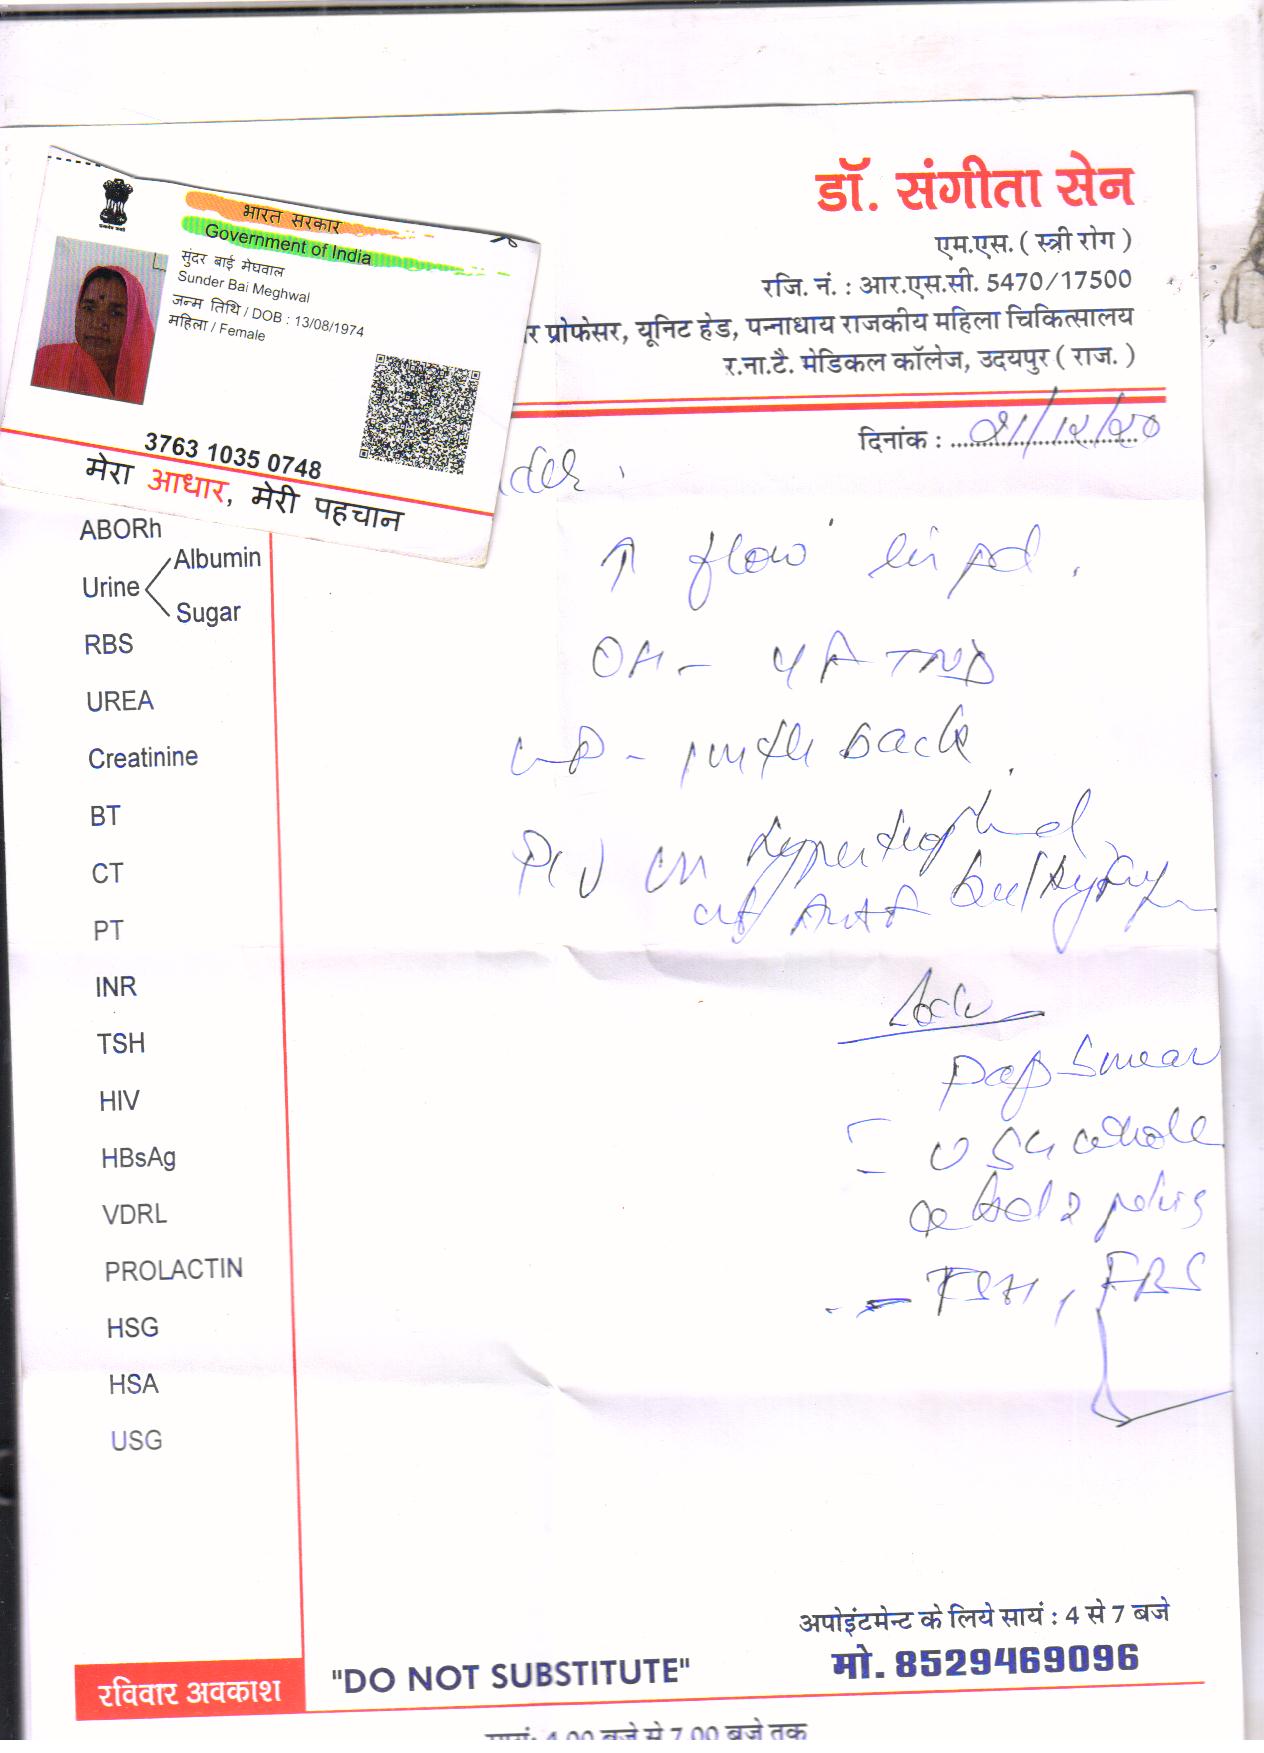 डॉ. संगीता सेन
एम.एस. ( स्त्री रोग )
रजि. नं. : आर.एस.सी. 5470/17500
र प्रोफेसर, यूनिट हेड, पन्नाधाय राजकीय महिला चिकित्सालय
र.ना.टै. मेडिकल कॉलेज, उदयपुर ( राज. )
भारत सरकार
Government of India
सुंदर बाई मेघवाल
Sunder Bai Meghwal
जन्म तिथि / DOB : 13/08/1974
महिला / Female
3763 1035 0748
मेरा आधार, मेरी पहचान
दिनांक :
↑ flow
OH -
back
P/V hypertrophied
Pap Smear
USG whole
pelvis
- TSH, FBS
ABORh
Urine
Albumin
Sugar
RBS
UREA
Creatinine
BT
CT
PT
INR
TSH
HIV
HBsAg
VDRL
PROLACTIN
HSG
HSA
USG
अपोइंटमेन्ट के लिये सायं : 4 से 7 बजे
मो. 8529469096
रविवार अवकाश
"DO NOT SUBSTITUTE"
सायं: 4.00 बजे से 7.00 बजे तक